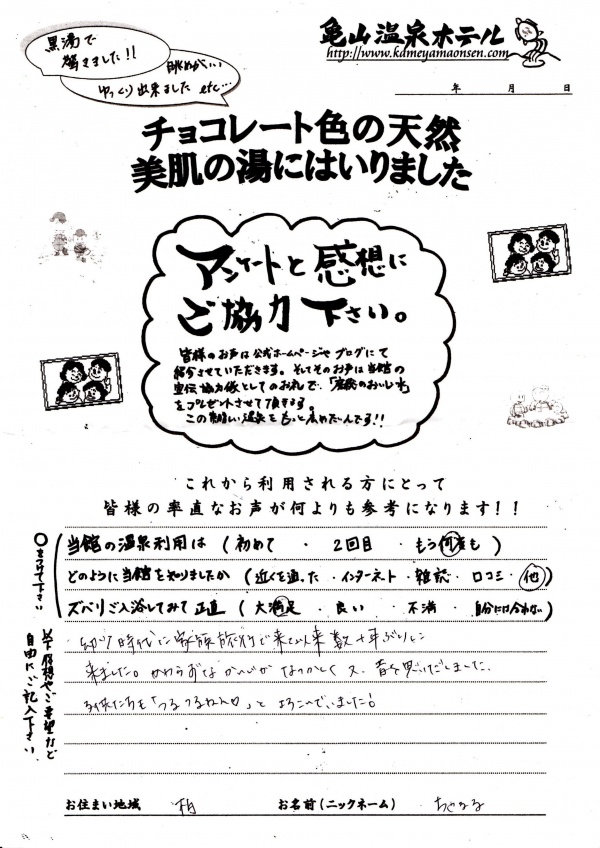 黒湯で
驚きました!!
眺めがいい
ゆっくり出来ました etc...
亀山温泉ホテル
http://www.kameyamaonsen.com
年 月 日
チョコレート色の天然
美肌の湯にはいりました
アンケートと感想に
ご協力下さい。
皆様のお声は公式ホームページやブログにて
紹介させていただきます。そしてそのお声は当館の
宣伝協力像としてのお礼で、「房総のおいしい水」
をプレゼントさせて頂きます。
この素晴しい温泉をもっと広めたいんです!!
これから利用される方にとって
皆様の率直なお声が何よりも参考になります!!
○をつけて下さい
当館の温泉利用は (初めて ・ 2回目 ・ もう何度も)
どのように当館を知りましたか (近くを通った ・ インターネット ・ 雑誌 ・ 口コミ ・ 他)
ズバリご入浴してみて正直 (大満足 ・ 良い ・ 不満 ・ 自分には合わない)
以下感想やご要望など
自由にご記入下さい
幼少時代に家族旅行で来て以来数十年ぶりに
来ました。かわらずな かんじが なつかしく 又、昔を思いだしました。
子供たちも「つるつるねん♡」と よろこんでいました!
お住まい地域 柏
お名前(ニックネーム)